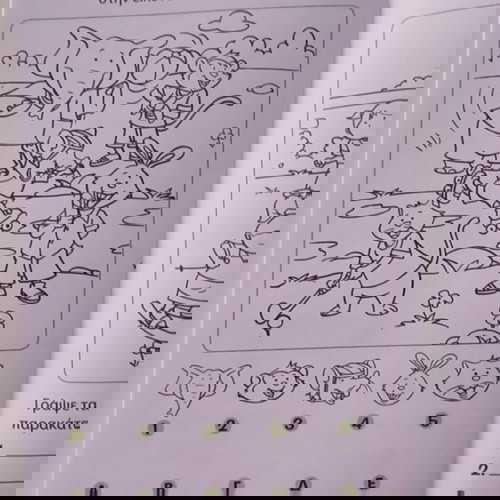 στην εικόνα
Γράψε τα
παρακάτω
1 2 3 4 5
2.